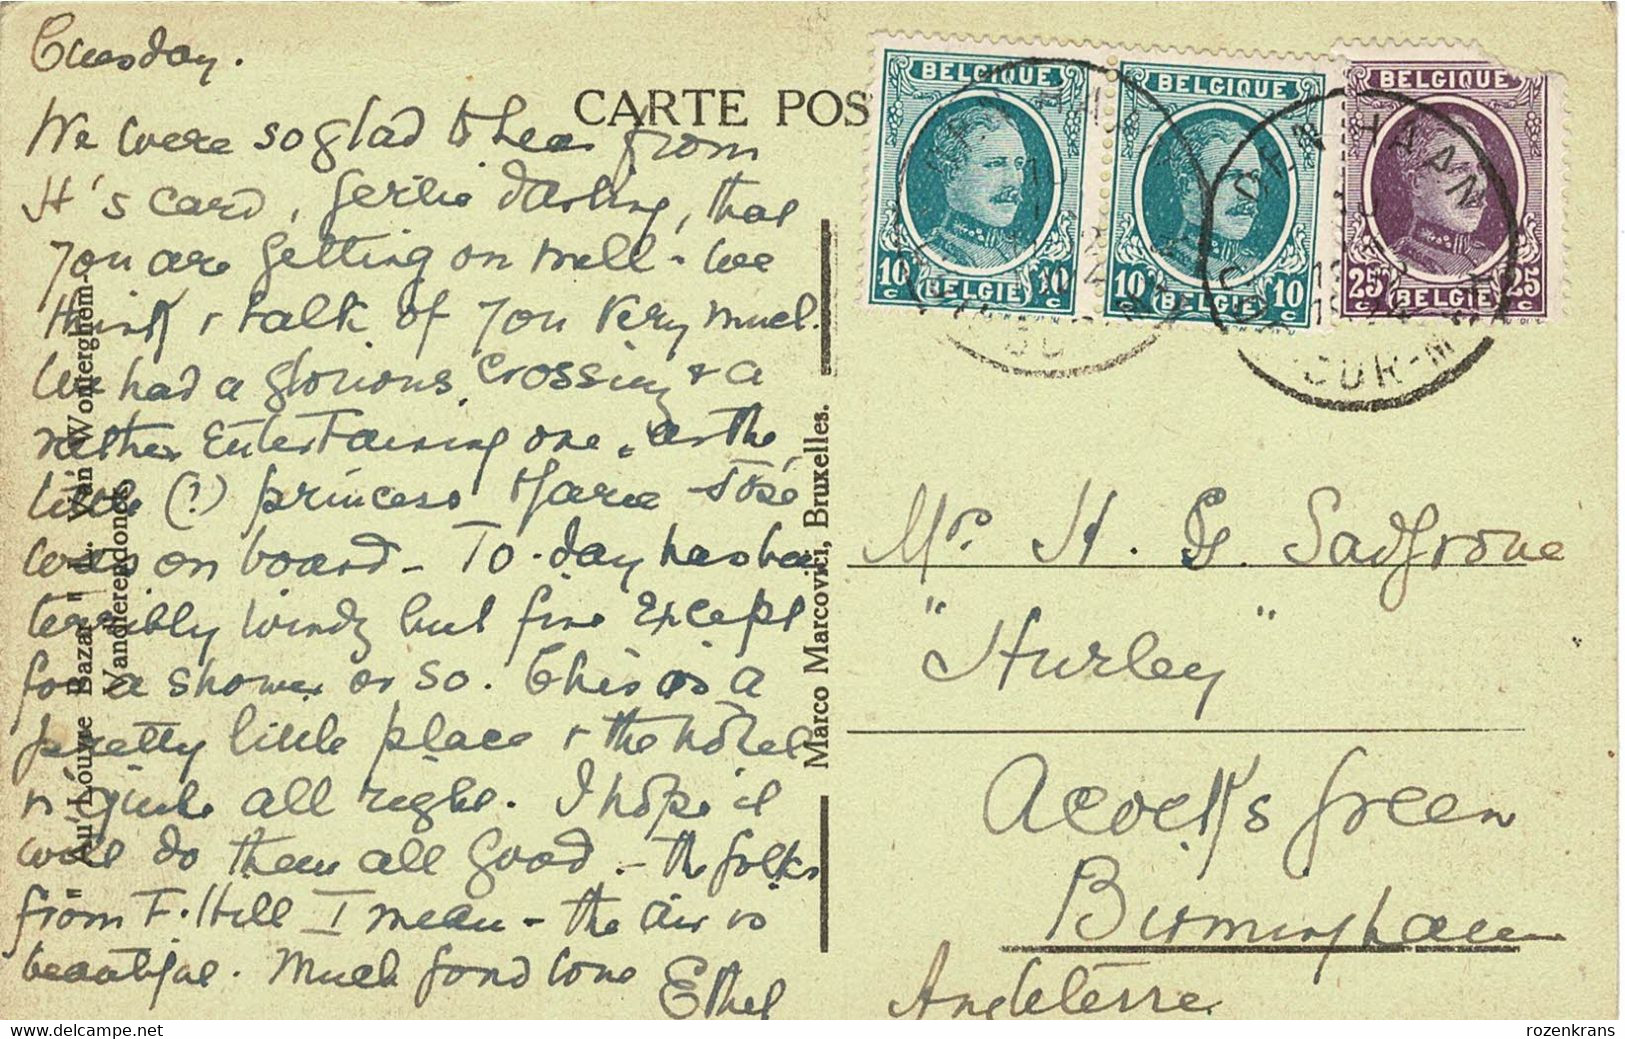 Tuesday.
CARTE POS
We were so glad to hear from
H's card, Gertie darling, that
you are getting on well - we
think & talk of you very much.
We had a glorious crossing & a
rather entertaining one, as the
little (?) princess Marie-José
was on board - To-day has been
terribly windy but fine except
for a shower or so. This is a
pretty little place & the hôtel
is quite all right. I hope it
will do them all good - the folks
from F. Hill I mean - the air is
beautiful. Much fond love
Ethel
"Au Louvre Bazar" L. Van Wonterghem-
Vanderendonck
Marco Marcovici, Bruxelles.
BELGIQUE
10 c 10 c
BELGIE
BELGIQUE
10 c 10 c
BELGIE
BELGIQUE
25 c 25 c
BELGIE
DEN HAAN
1924
COQ-SUR-M
Mr. H. G. Sadgrove
"Hurley"
Acock's Green
Birmingham
Angleterre
www.delcampe.net
rozenkrans